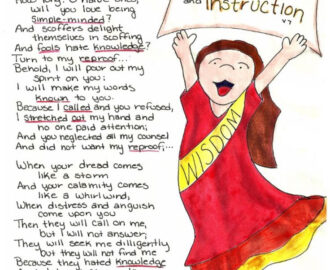 will you love being
simple-minded?
And scoffers delight
themselves in scoffing
And fools hate knowledge?
Turn to my reproof...
Behold, I will pour out my
spirit on you;
I will make my words
known to you.
Because I called and you refused,
I stretched out my hand and
no one paid attention;
And you neglected all my counsel
And did not want my reproof;...
When your dread comes
like a storm
And your calamity comes
like a whirlwind,
When distress and anguish
come upon you
Then they will call on me,
but I will not answer;
They will seek me dilligently
but they will not find me
Because they hated knowledge
and instruction
v7
WISDOM